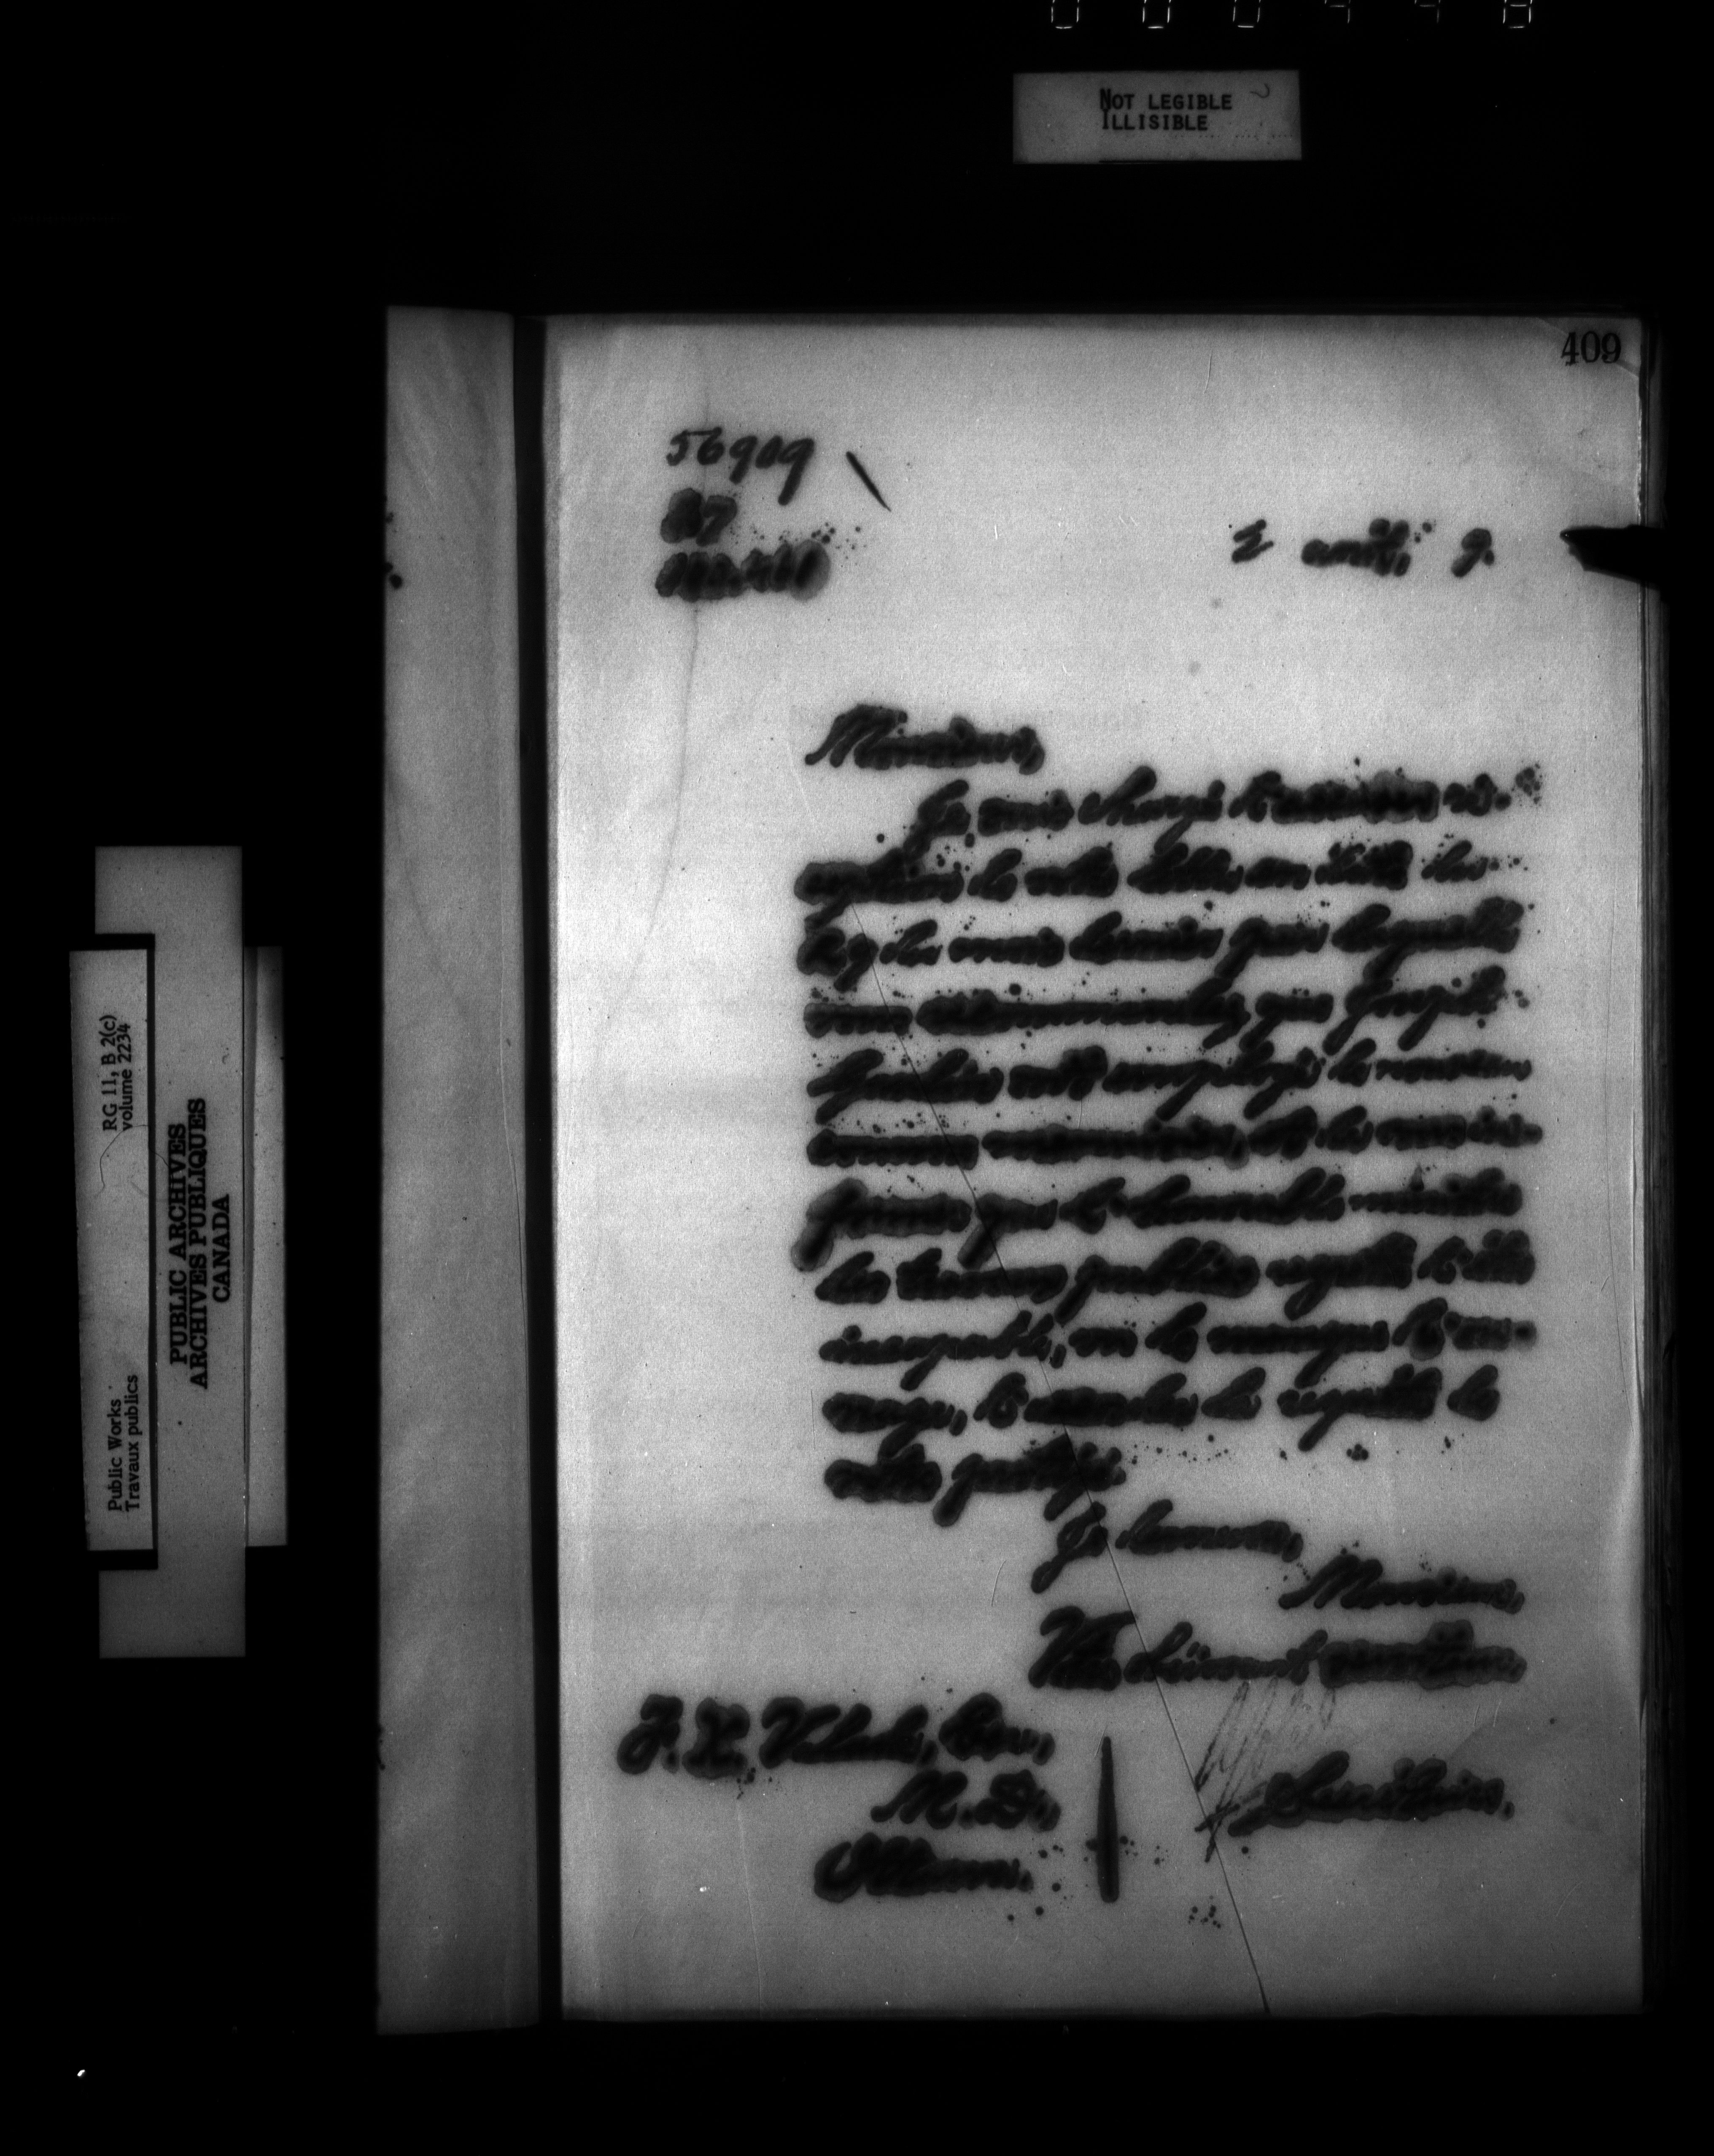 NOT LEGIBLE
ILLISIBLE
409
56909
87
2 avril, 9.
Monsieur,
Je suis chargé d'accuser ré-
ception de votre lettre en date du
29 du mois dernier par laquelle
vous recommandez que
soit employé de nouveau
comme et de vous in-
former que l'honorable ministre
des travaux publics regrette d'être
incapable, vu le manque d'ou-
vrage, d'accéder à la requête de
votre protégé.
Je demeure,
Monsieur,
Votre dévoué serviteur,
F. X. Valade, Ecr.,
M. D.,
Ottawa.
Secrétaire.
RG 11, B 2(c)
volume 2234
Public Works
Travaux publics
PUBLIC ARCHIVES
ARCHIVES PUBLIQUES
CANADA